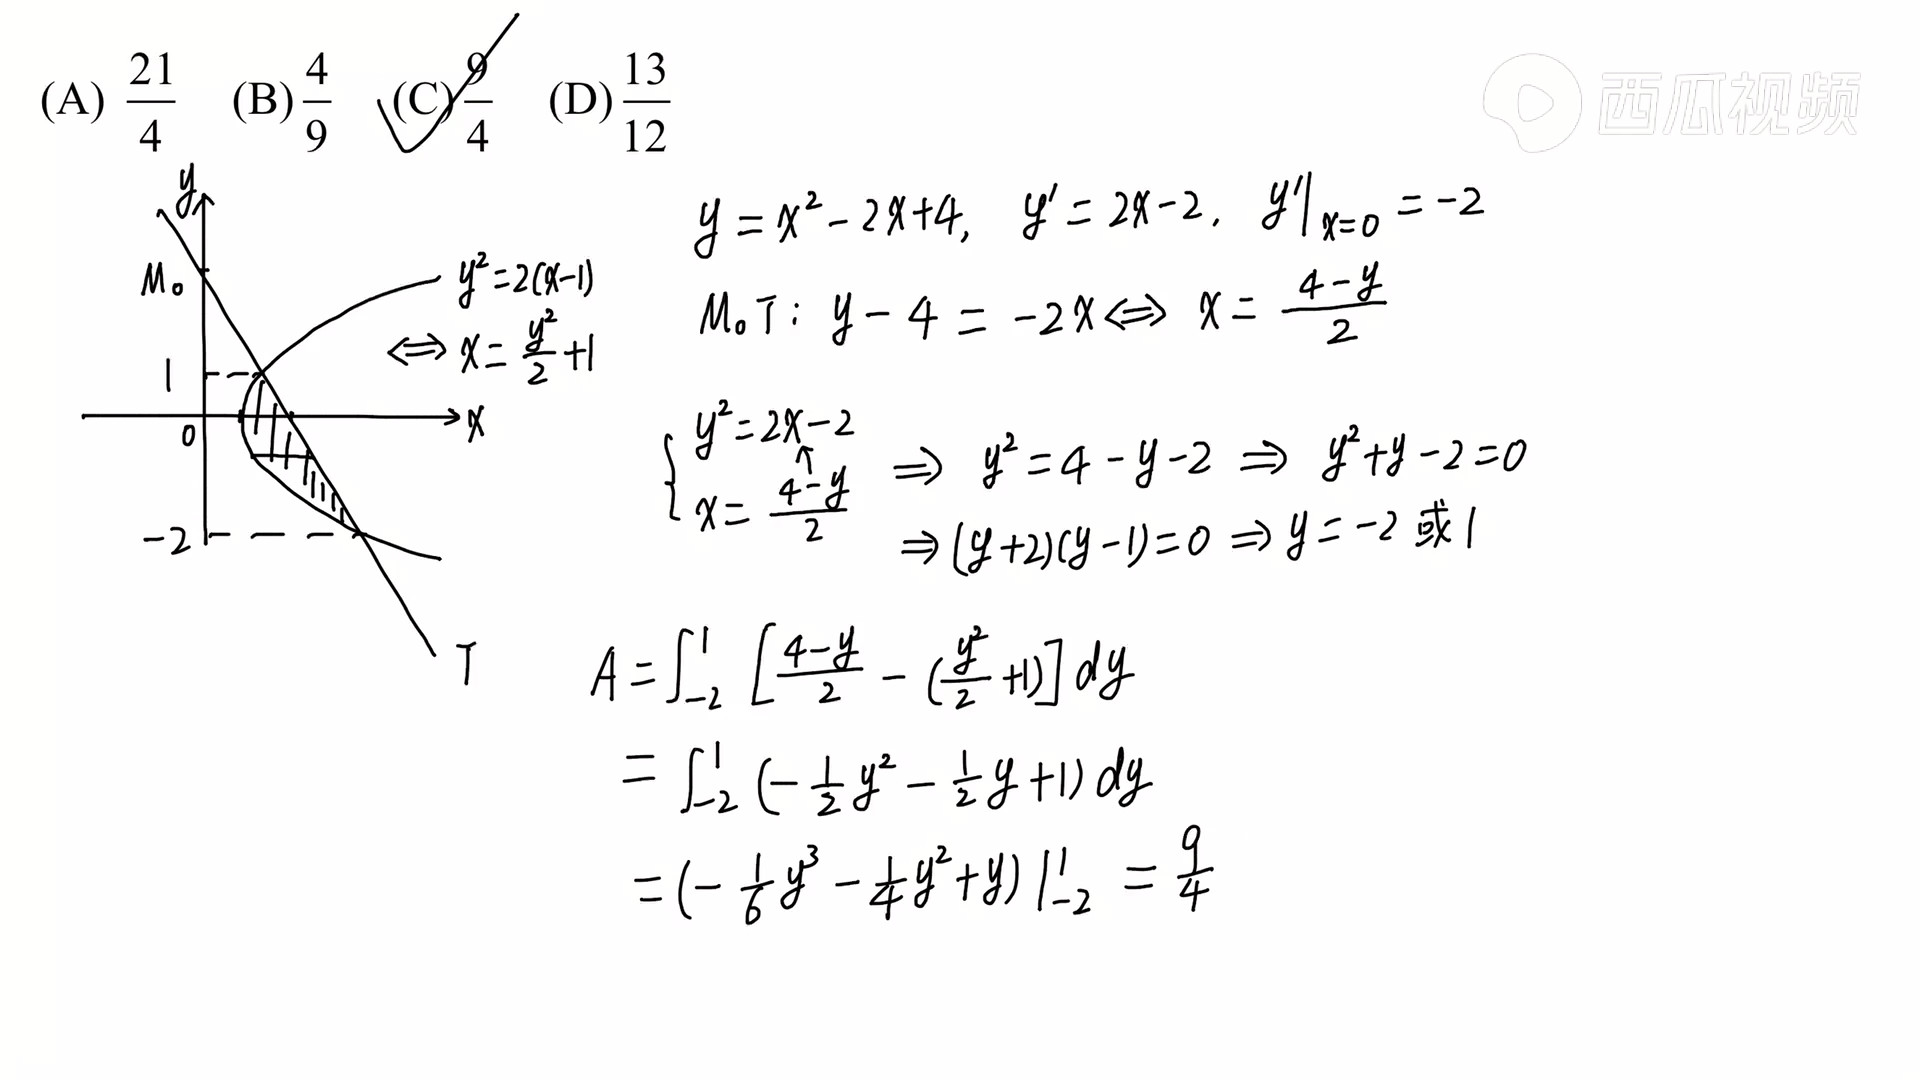 (A) 21/4 (B) 4/9 (C) 9/4 (D) 13/12
西瓜视频
y
M₀
1
0
-2
x
T
y²=2(x-1)
⇔ x = y²/2 + 1
y = x² - 2x + 4, y' = 2x - 2, y'|ₓ₌₀ = -2
M₀T: y - 4 = -2x ⇔ x = (4-y)/2
{ y² = 2x - 2
x = (4-y)/2
⇒ y² = 4 - y - 2 ⇒ y² + y - 2 = 0
⇒ (y+2)(y-1) = 0 ⇒ y = -2 或 1
A = ∫₋₂¹ [(4-y)/2 - (y²/2 + 1)] dy
= ∫₋₂¹ (-1/2 y² - 1/2 y + 1) dy
= (-1/6 y³ - 1/4 y² + y) |₋₂¹ = 9/4